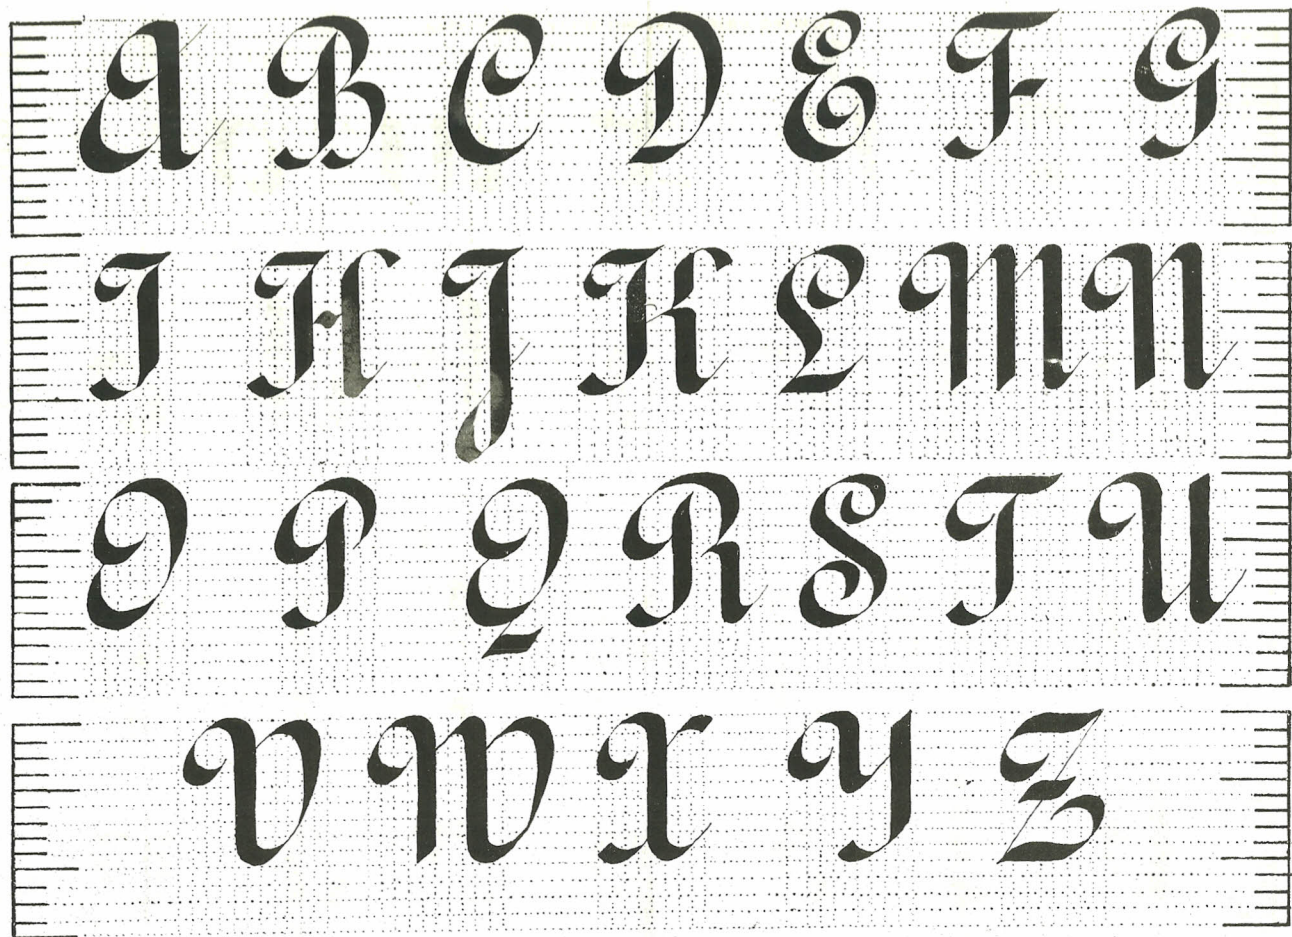 A B C D E F G
I H J K L M N
O P Q R S T U
V W X Y Z